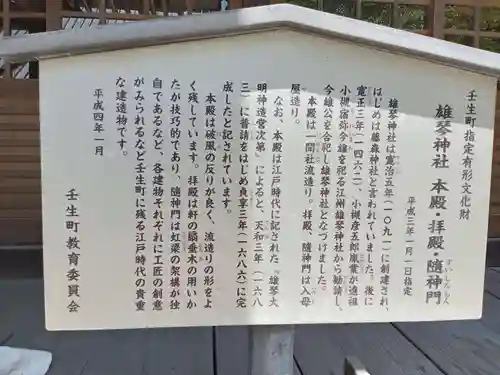 壬生町指定有形文化財
雄琴神社 本殿・拝殿・隨神門
ずいしんもん
平成三年一月一日指定
雄琴神社は寛治五年(一〇九一)に創建され、
はじめは藤森神社と言われていました。後に
寛正三年(一四六二)、小槻彦五郎胤業が遠祖
小槻宿弥今雄を祀る江州雄琴神社から勧請し、
今雄公を合祀し雄琴神社となづけました。
本殿は一間社流造り。拝殿、隨神門は入母
屋造り。
なお、本殿は江戸時代に記された『雄琴大
明神造営次第』によると、天和三年(一六八
三)に普請をはじめ貞享三年(一六八六)に完
成したと記されています。
本殿は破風の反りが良く、流造りの形をよ
く残しています。拝殿は軒の繁垂木の用いか
たが技巧的であり、隨神門は虹梁の架構が独
自であるなど、各建物それぞれに工匠の創意
がみられるなど壬生町に残る江戸時代の貴重
な建造物です。
平成四年一月
壬生町教育委員会